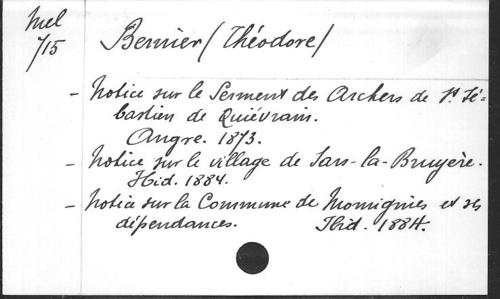 Mel
715
Bernier (Théodore)
- Notice sur le Serment des Archers de St Sé-
bastien de Quiévrain.
Angre. 1873.
- Notice sur le village de Sars-la-Bruyère.
Ibid. 1884.
- Notice sur la Commune de Momignies et ses
dépendances. Ibid. 1884.